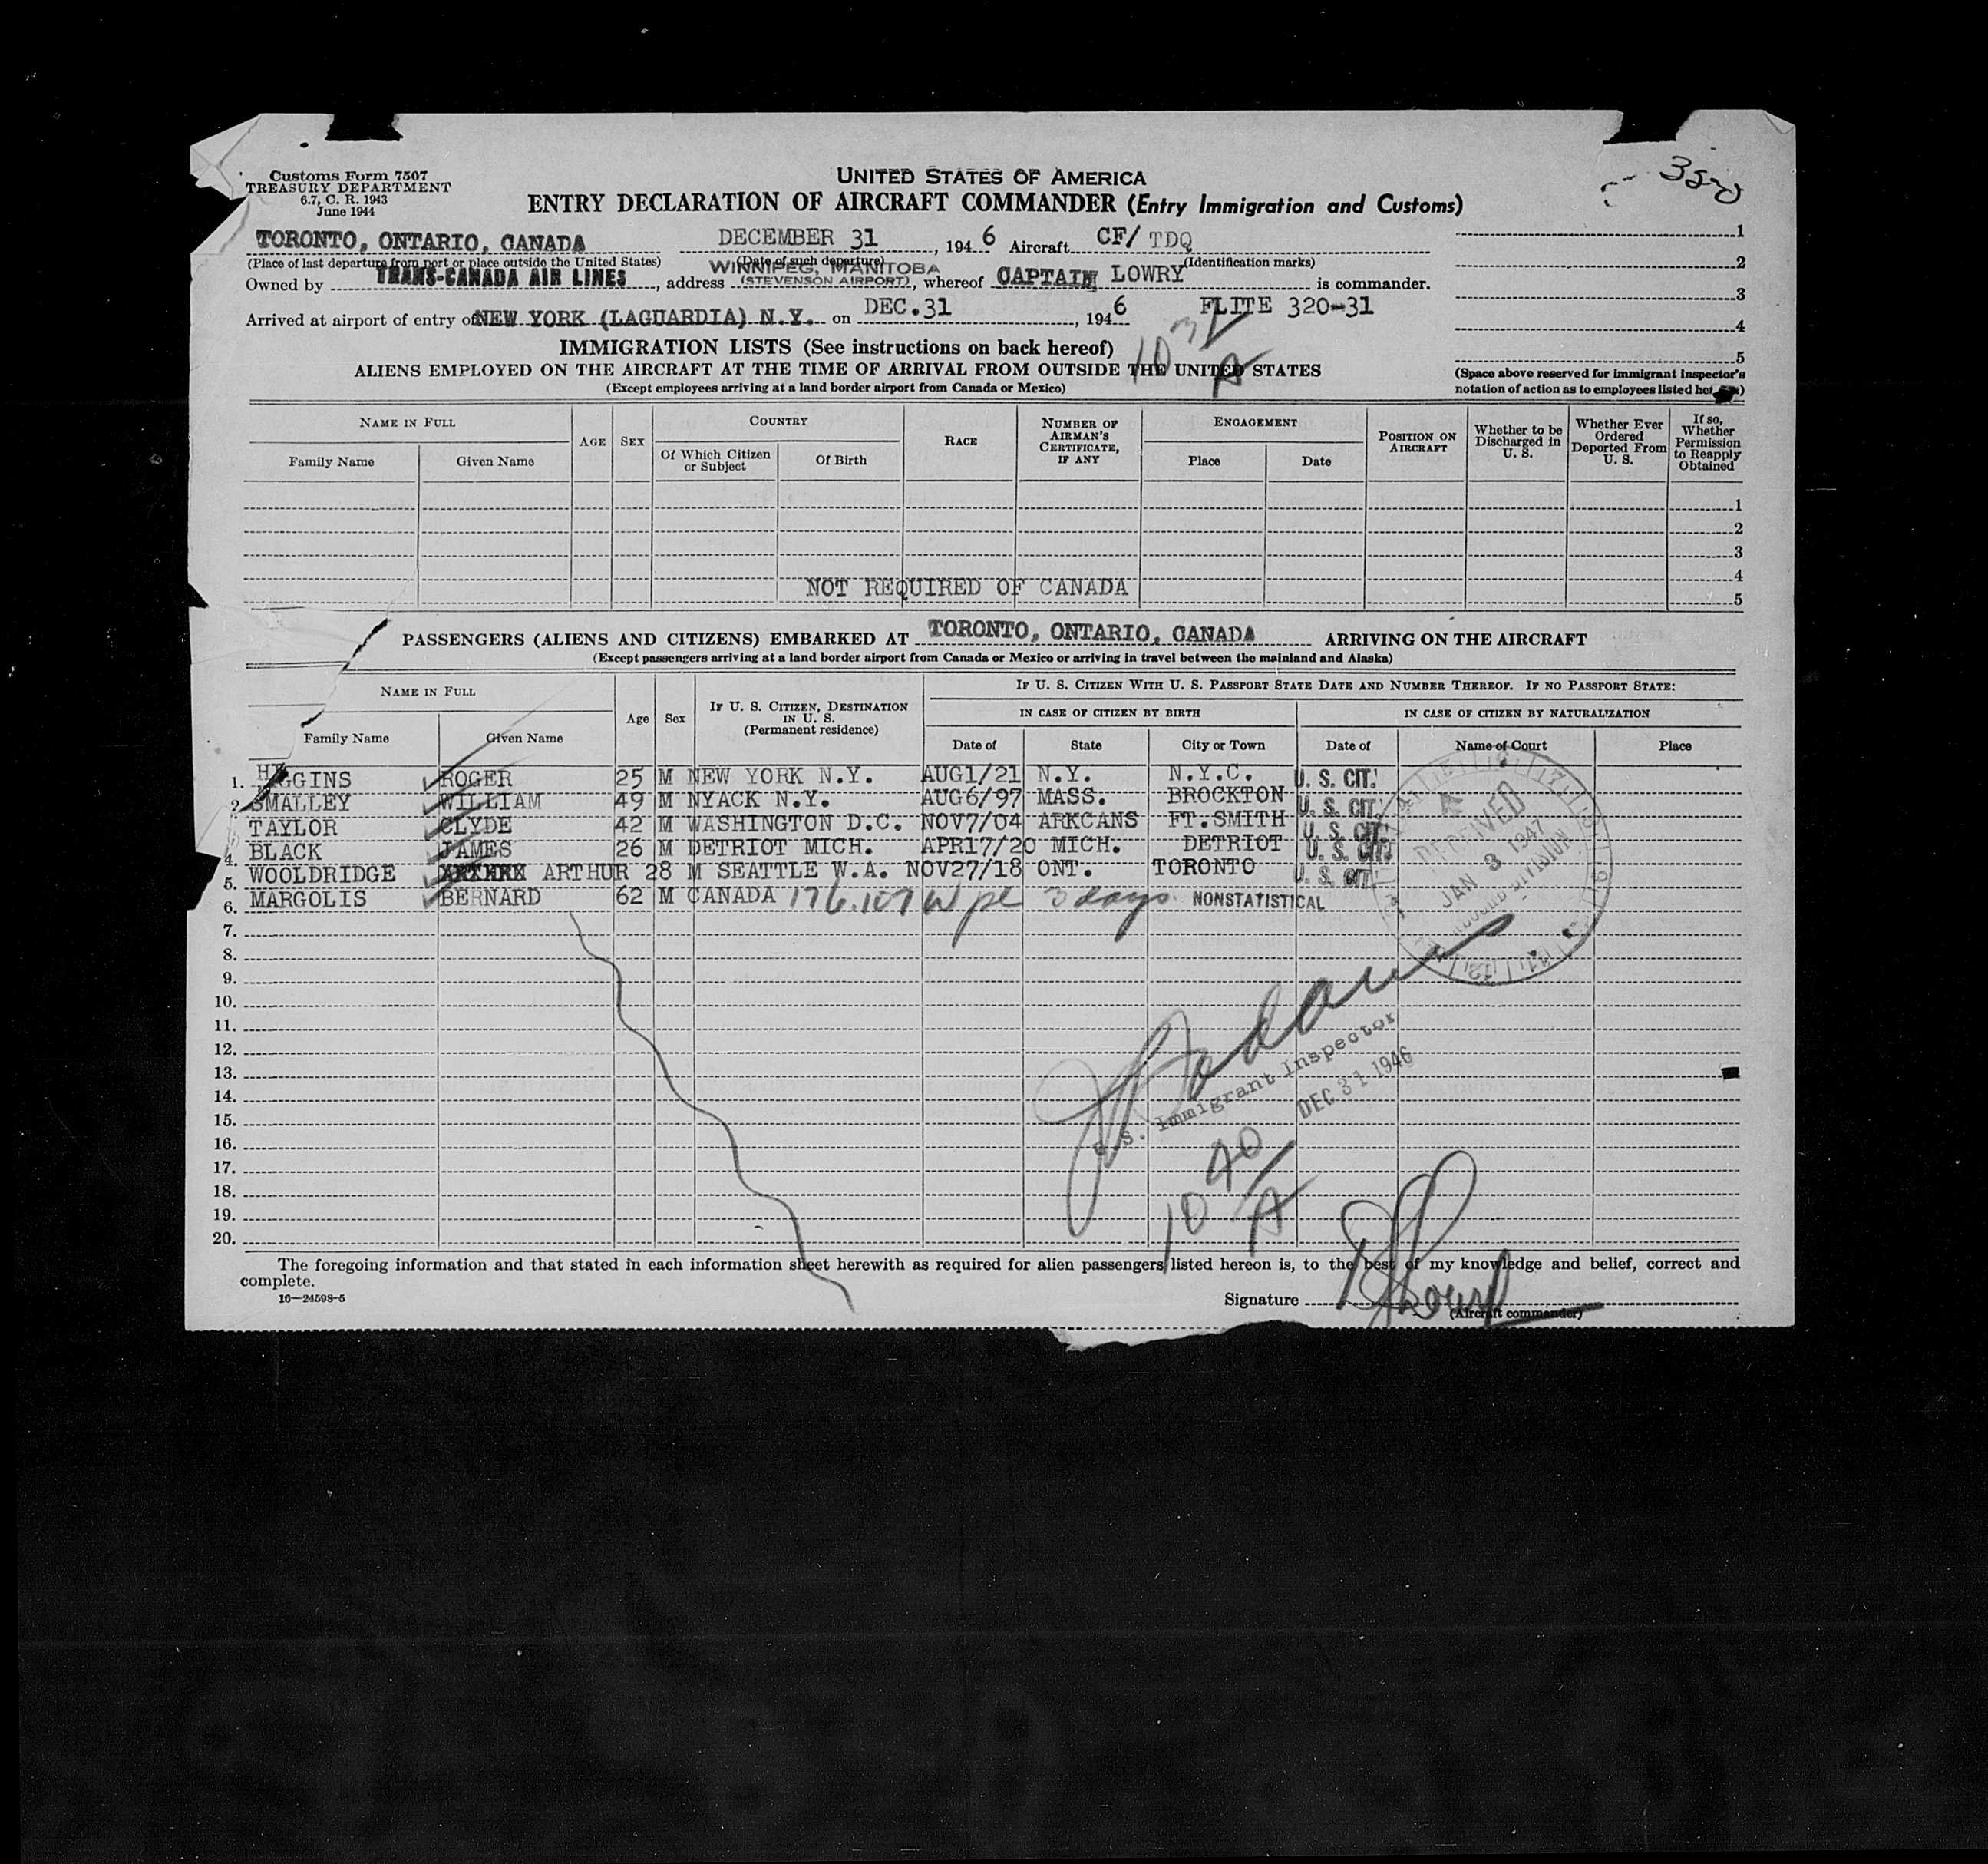 Customs Form 7507
TREASURY DEPARTMENT
6.7, C. R. 1943
June 1944
UNITED STATES OF AMERICA
ENTRY DECLARATION OF AIRCRAFT COMMANDER (Entry Immigration and Customs)
TORONTO, ONTARIO, CANADA DECEMBER 31, 194 6 Aircraft CF/ TDQ
(Place of last departure from port or place outside the United States) (Date of such departure) (Identification marks)
WINNIPEG, MANITOBA
Owned by TRANS-CANADA AIR LINES, address (STEVENSON AIRPORT), whereof CAPTAIN LOWRY is commander.
Arrived at airport of entry of NEW YORK (LAGUARDIA) N.Y. on DEC.31, 194 6 FLITE 320-31
1
2
3
4
5
(Space above reserved for immigrant inspector's
notation of action as to employees listed
IMMIGRATION LISTS (See instructions on back hereof)
ALIENS EMPLOYED ON THE AIRCRAFT AT THE TIME OF ARRIVAL FROM OUTSIDE THE UNITED STATES
(Except employees arriving at a land border airport from Canada or Mexico)
NAME IN FULL AGE SEX COUNTRY RACE NUMBER OF AIRMAN'S CERTIFICATE, IF ANY ENGAGEMENT POSITION ON AIRCRAFT Whether to be Discharged in U. S. Whether Ever Ordered Deported From U. S. If so, Whether Permission to Reapply Obtained
Family Name Given Name Of Which Citizen or Subject Of Birth Place Date
1
2
3
4
NOT REQUIRED OF CANADA
5
PASSENGERS (ALIENS AND CITIZENS) EMBARKED AT TORONTO, ONTARIO, CANADA ARRIVING ON THE AIRCRAFT
(Except passengers arriving at a land border airport from Canada or Mexico or arriving in travel between the mainland and Alaska)
NAME IN FULL Age Sex IF U. S. CITIZEN, DESTINATION IN U. S. (Permanent residence) IF U. S. CITIZEN WITH U. S. PASSPORT STATE DATE AND NUMBER THEREOF. IF NO PASSPORT STATE:
IN CASE OF CITIZEN BY BIRTH IN CASE OF CITIZEN BY NATURALIZATION
Family Name Given Name Date of State City or Town Date of Name of Court Place
1. HIGGINS ROGER 25 M NEW YORK N.Y. AUG1/21 N.Y. N.Y.C. U. S. CIT.
2. SMALLEY WILLIAM 49 M NYACK N.Y. AUG6/97 MASS. BROCKTON U. S. CIT.
TAYLOR CLYDE 42 M WASHINGTON D.C. NOV7/04 ARKCANS FT.SMITH U. S. CIT.
4. BLACK JAMES 26 M DETRIOT MICH. APR17/20 MICH. DETRIOT U. S. CIT.
5. WOOLDRIDGE ARTHUR 28 M SEATTLE W.A. NOV27/18 ONT. TORONTO U. S. CIT.
6. MARGOLIS BERNARD 62 M CANADA 3 days NONSTATISTICAL
7.
8.
9.
10.
11.
12.
13.
14.
15.
16.
17.
18.
19.
20.
RECEIVED
JAN 3 1947
DIVISION
U.S. Immigrant Inspector
DEC 31 1946
10 40 A
The foregoing information and that stated in each information sheet herewith as required for alien passengers listed hereon is, to the best of my knowledge and belief, correct and
complete.
16—24598-5
Signature
(Aircraft commander)